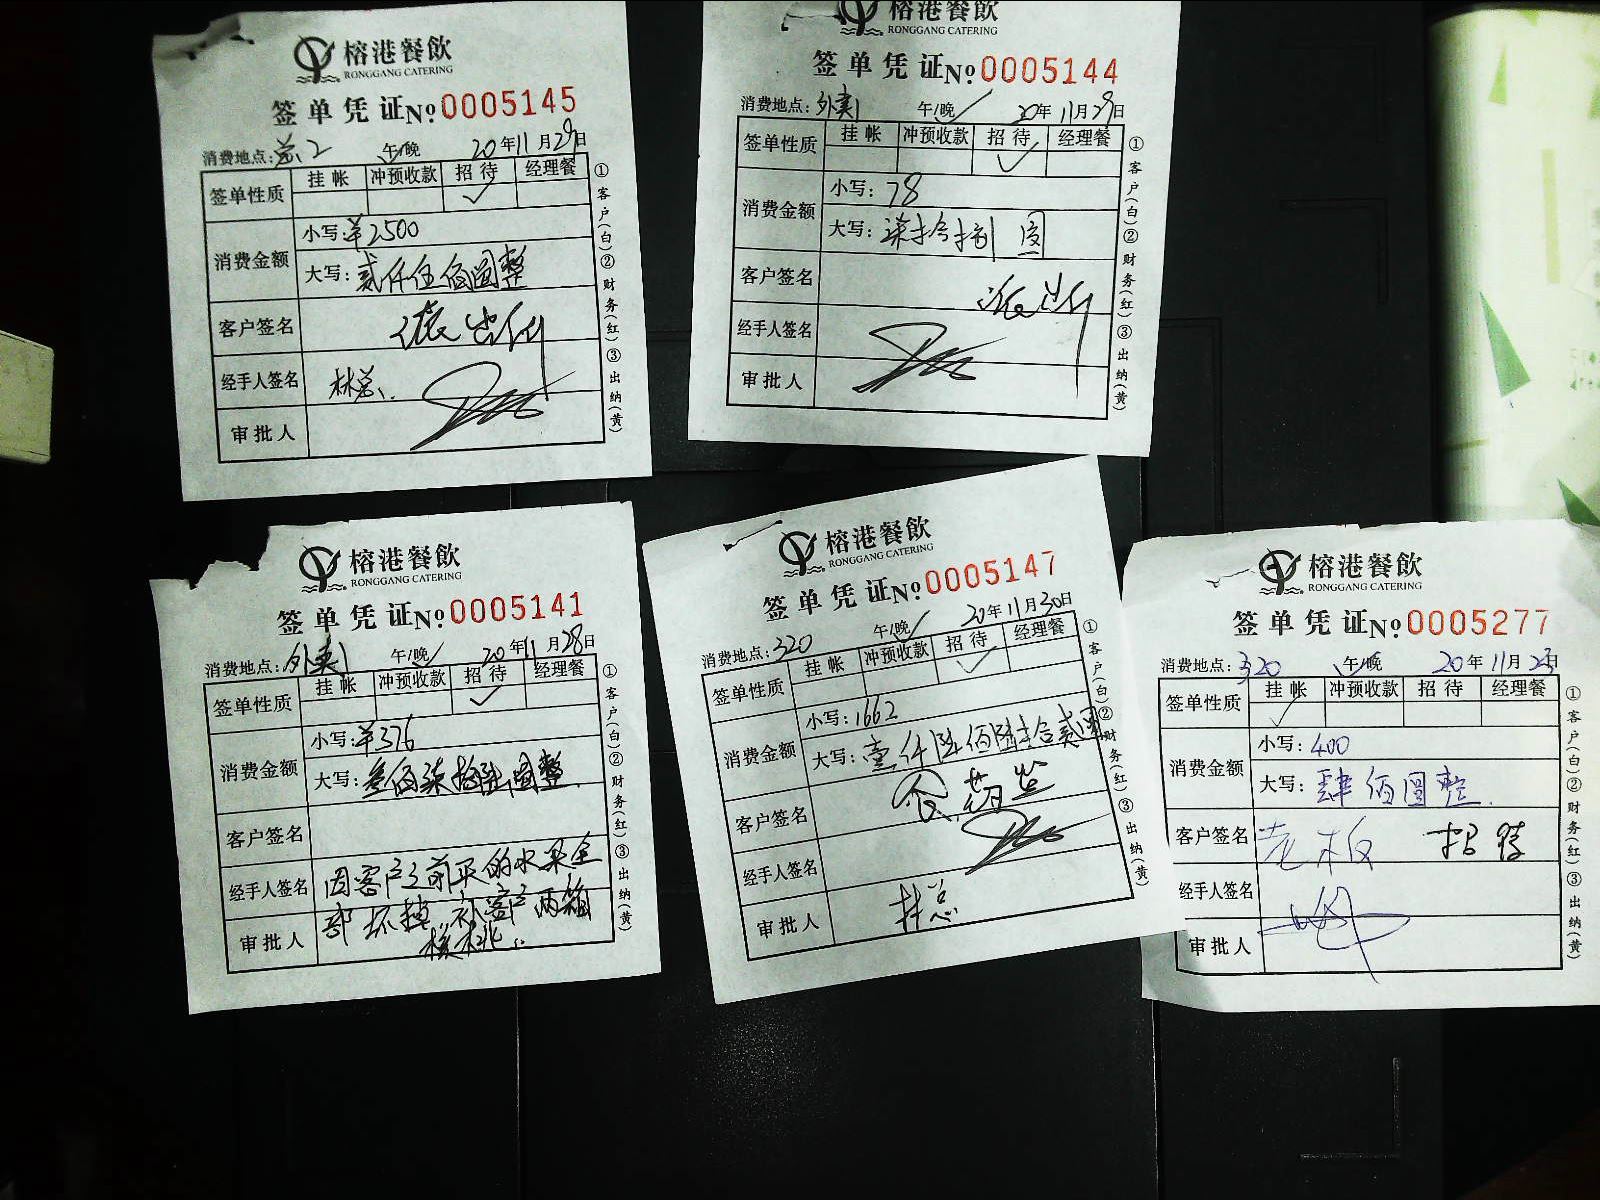 榕港餐飲
RONGGANG CATERING
签单凭证 №0005145
消费地点: 总2 午/晚 20年11月29日
签单性质 挂帐 冲预收款 招待 经理餐
✓
消费金额 小写: ¥2500
大写: 贰仟伍佰圆整
客户签名
经手人签名 林总
审批人
①客户(白)②财务(红)③出纳(黄)
榕港餐飲
RONGGANG CATERING
签单凭证 №0005144
消费地点: 外卖 午/晚 20年11月29日
签单性质 挂帐 冲预收款 招待 经理餐
✓
消费金额 小写: 78
大写: 柒拾捌圆
客户签名
经手人签名
审批人
①客户(白)②财务(红)③出纳(黄)
榕港餐飲
RONGGANG CATERING
签单凭证 №0005141
消费地点: 外卖 午/晚 20年11月28日
签单性质 挂帐 冲预收款 招待 经理餐
✓
消费金额 小写: ¥376
大写: 叁佰柒拾陆圆整
客户签名
经手人签名 因客户之前买的水果全
审批人 部坏掉 补客户两箱
樱桃
①客户(白)②财务(红)③出纳(黄)
榕港餐飲
RONGGANG CATERING
签单凭证 №0005147
消费地点: 320 午/晚 20年11月30日
签单性质 挂帐 冲预收款 招待 经理餐
✓
消费金额 小写: 1662
大写: 壹仟陆佰陆拾贰圆
客户签名
经手人签名
审批人 林总
①客户(白)②财务(红)③出纳(黄)
榕港餐飲
RONGGANG CATERING
签单凭证 №0005277
消费地点: 320 午/晚 20年11月23日
签单性质 挂帐 冲预收款 招待 经理餐
✓
消费金额 小写: 400
大写: 肆佰圆整
客户签名 老板 招待
经手人签名
审批人
①客户(白)②财务(红)③出纳(黄)